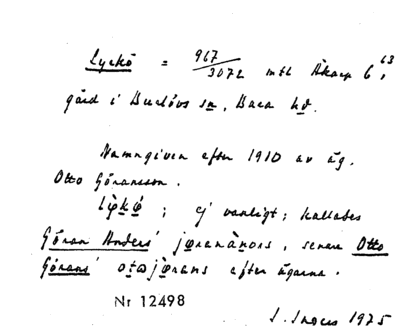 Lyckö = 967/3072 mtl Åkarp 6 63,
gård i Burlövs sn, Bara hd.
Namngiven efter 1910 av äg.
Otto Göransson.
; ej vanligt; kallades
Göran Anders' , senare Otto
Görans' efter ägarna.
Nr 12498
1975